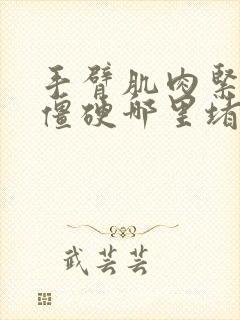 手臂肌肉緊
僵硬哪里堵
武芸芸